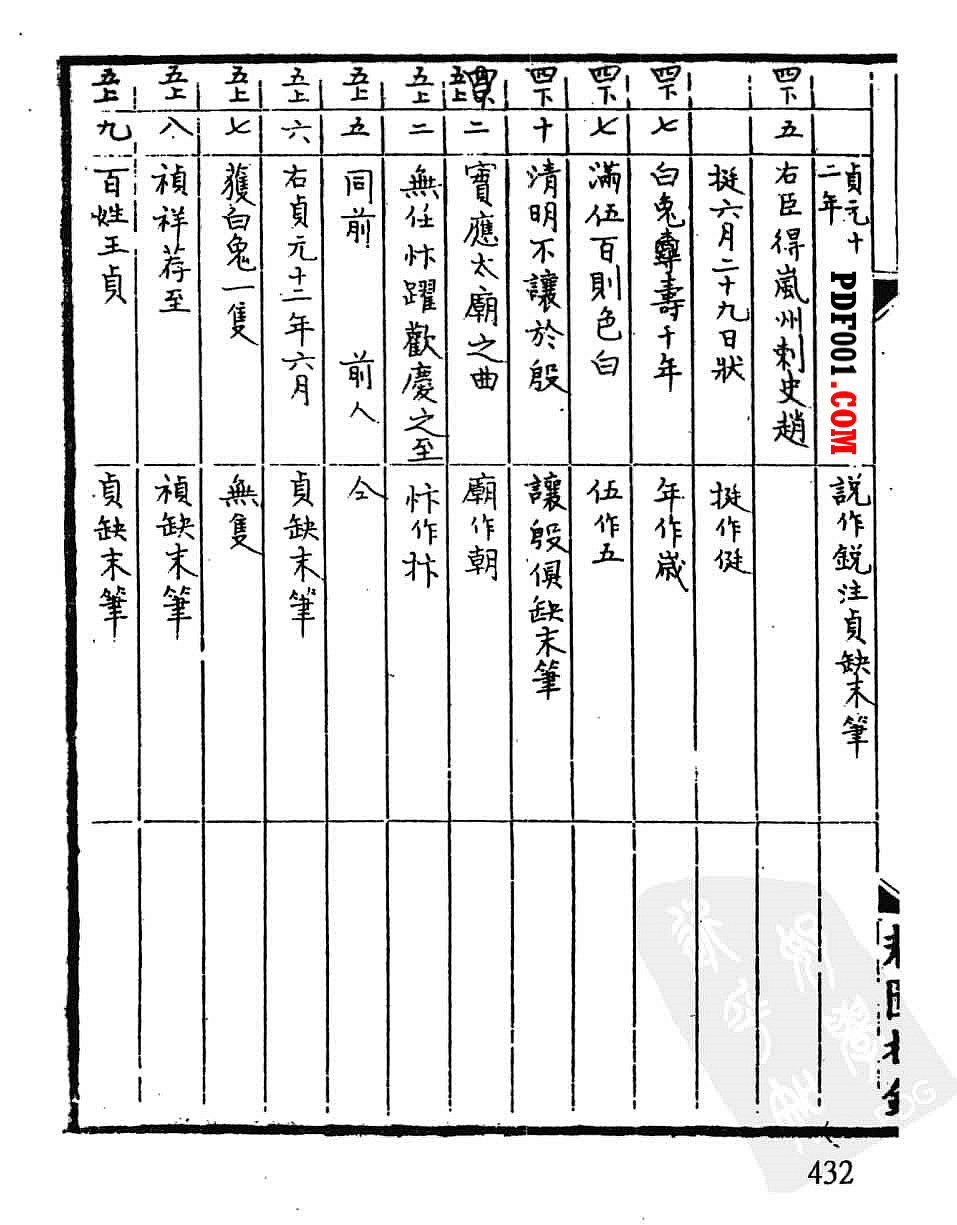 貞元十
二年
説作鋭注貞缺末筆
四下
五
右臣得嵐州刺史趙
挺六月二十九日狀
挺作侹
四下
七
白兔壽千年
年作歲
四下
七
滿伍百則色白
伍作五
四下
十
清明不讓於殷
讓殷俱缺末筆
五上
二
寶應太廟之曲
廟作朝
五上
二
無任忭躍歡慶之至
忭作抃
五上
五
同前 前人
仝
五上
六
右貞元十二年六月
貞缺末筆
五上
七
獲白兔一隻
無隻
五上
八
禎祥荐至
禎缺末筆
五上
九
百姓王貞
貞缺末筆
PDF001.COM
PDG
432